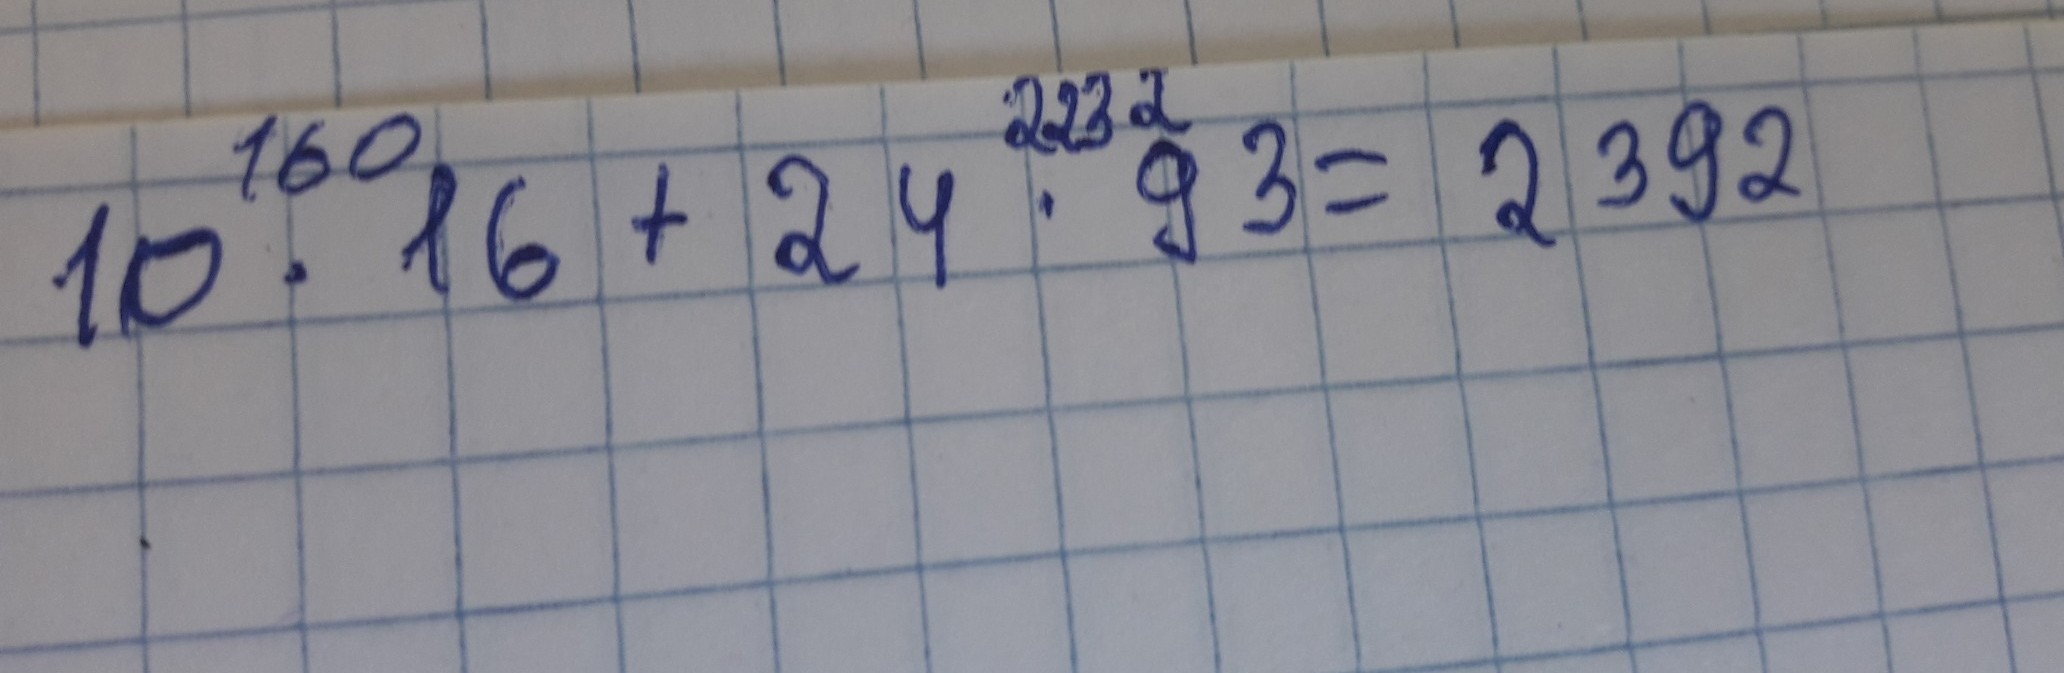 160 2232
10 · 16 + 24 · 93 = 2392